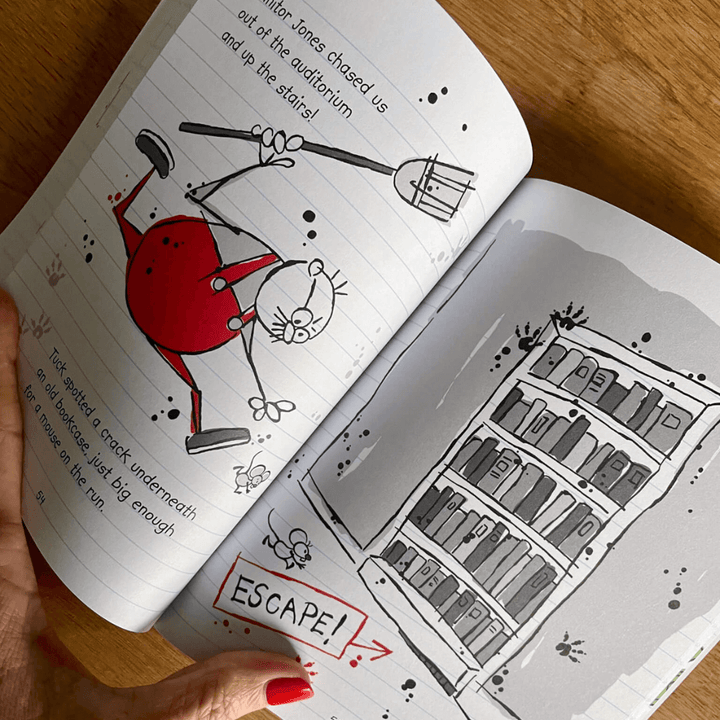 Jones chased us
out of the auditorium
and up the stairs!
Tuck spotted a crack underneath
an old bookcase, just big enough
for a mouse on the run.
54
ESCAPE!